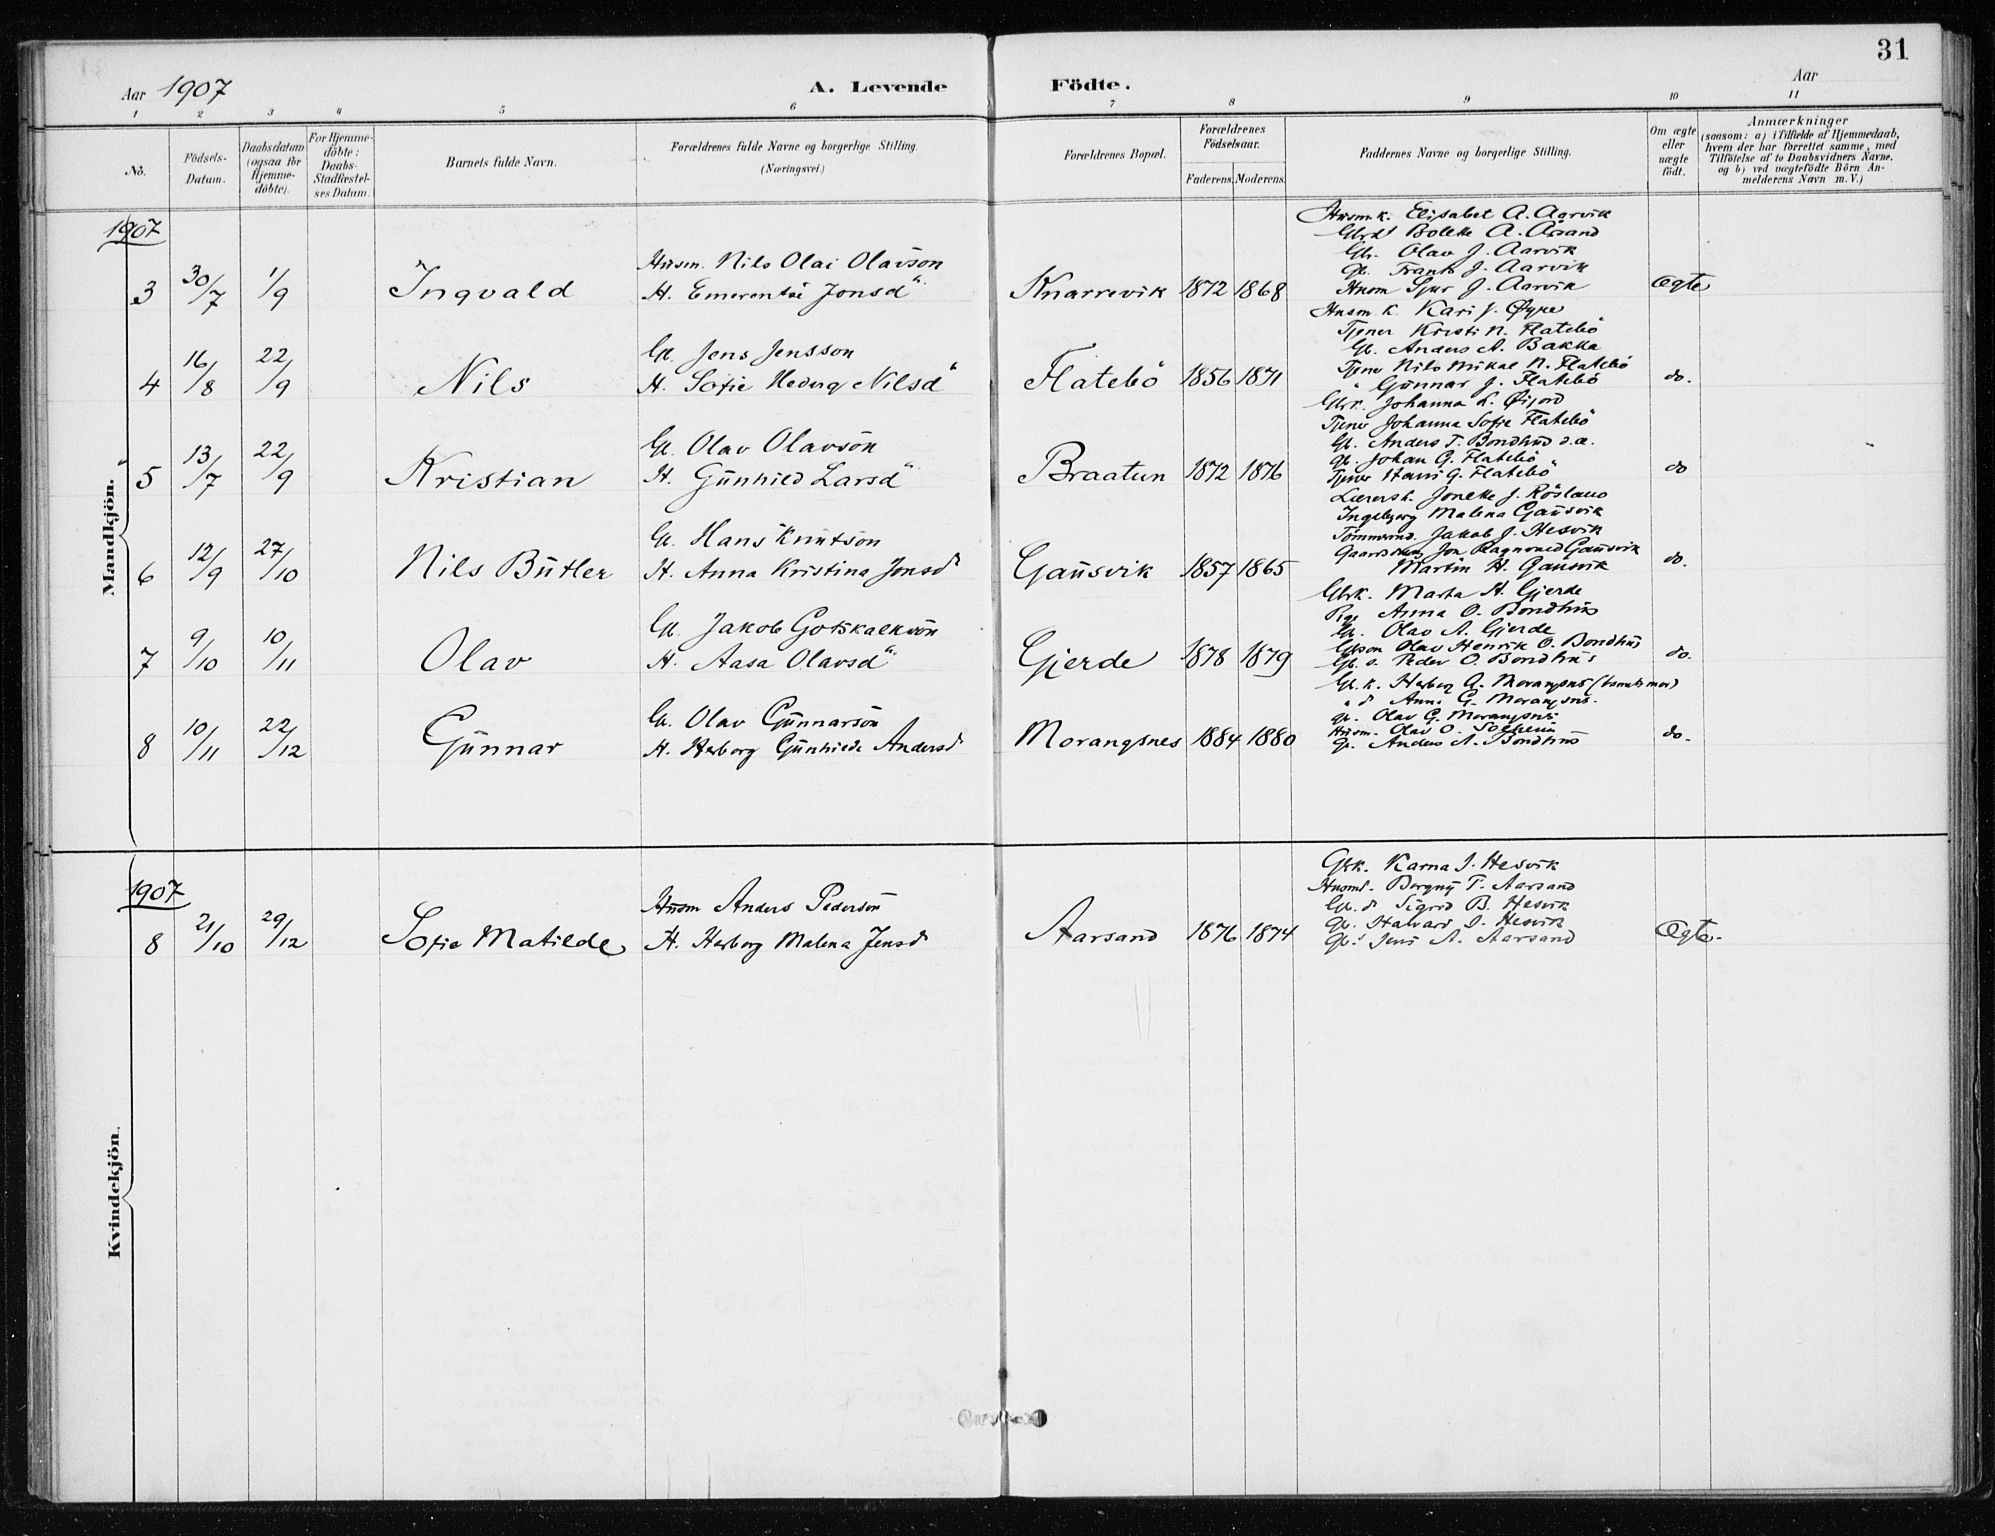 31
Aar 1907
A. Levende Födte.
Aar
1 2 3 4 5 6 7 8 9 10 11
No.
Födsels-Datum.
Daabsdatum (ogsaa for Hjemme-döbte).
For Hjemme-döbte: Daabs-Stadfæstel-ses Datum.
Barnets fulde Navn.
Forældrenes fulde Navne og borgerlige Stilling. (Næringsvei.)
Forældrenes Bopæl.
Forældrenes Födselsaar.
Faderens. Moderens.
Faddernes Navne og borgerlige Stilling.
Om ægte eller uægte födt.
Anmærkninger
(saasom: a) i Tilfælde af Hjemmedaab,
hvem der har forrettet samme, med
Tilföielse af to Daabsvidners Navne,
og b) ved uægtefödte Börn An-
melderens Navn m. V.)
Mandkjön.
1907
Husm. Nils Olai Olavson
3 30/7 1/9 Ingvald H. Emerentse Jonsd Knarrevik 1872 1868 Ægte
Husm.k. Elisabet A. Aarvik
Bolette A. Arsand
Gbr. Olav J. Aarvik
Gb. Frants J. Aarvik
Husm Sjur J. Aarvik
Gb. Jens Jensson
4 16/8 22/9 Nils H. Sofie Hedvig Nilsd Flatebö 1856 1871 do.
Husm. k. Kari J. Øyre
Tjener Kristi N. Flatebö
Gb. Anders A. Bakka
Tjener Nils Mikal N. Flatebö
" Gunnar J. Flatebö
Gb. Olav Olavson
5 13/7 22/9 Kristian H. Gunhild Larsd Braatun 1872 1876 do
Gbrk. Johanna L. Øijord
Tjener Johanna Sofie Flatebö
Gb. Anders T. Bondhus d.æ.
Gb. Johan G. Flatebö
Tjener Hans G. Flatebö
Gb. Hans Knutson
6 12/9 27/10 Nils Butler H. Anna Kristina Jonsd Gausvik 1857 1865 do.
Lærersk. Jonette J. Röslano
Ingeborg Malena Gausvik
Tömmermd. Jakob J. Hesvik
Jon Ragnvald Gausvik
Martin H. Gausvik
Gb. Jakob Gotskalkson
7 9/10 10/11 Olav H. Aasa Olavsd Gjerde 1878 1879 do.
Gbrk. Marta H. Gjerde
Pige Anna O. Bondhus
Gb. Olav A. Gjerde
Gbson Olav Henrik O. Bondhus
Gb. s. Peder O. Bondhus
Gb. Olav Gunnarson
8 10/11 22/12 Gunnar H. Herborg Gunhilde Andersd Morangsnes 1884 1880 do.
Gb. k. Herborg G. Morangsnes
" d Anna G. Morangsnes.
Gb. Olav G. Morangsnes
Husm. Olav O. Solheim
Gb. Anders A. Bondhus
Kvindekjön.
1907
Husm Anders Pederson
8 21/10 29/12 Sofie Matilde H. Herborg Malena Jensd Aarsand 1876 1874 Ægte.
Gbrk. Karna I. Hesvik
Bergny T. Aarsand
Gb. d Sigrid B. Hesvik
Gb. Halvard I. Hesvik
Gb. Jens A. Aarsand